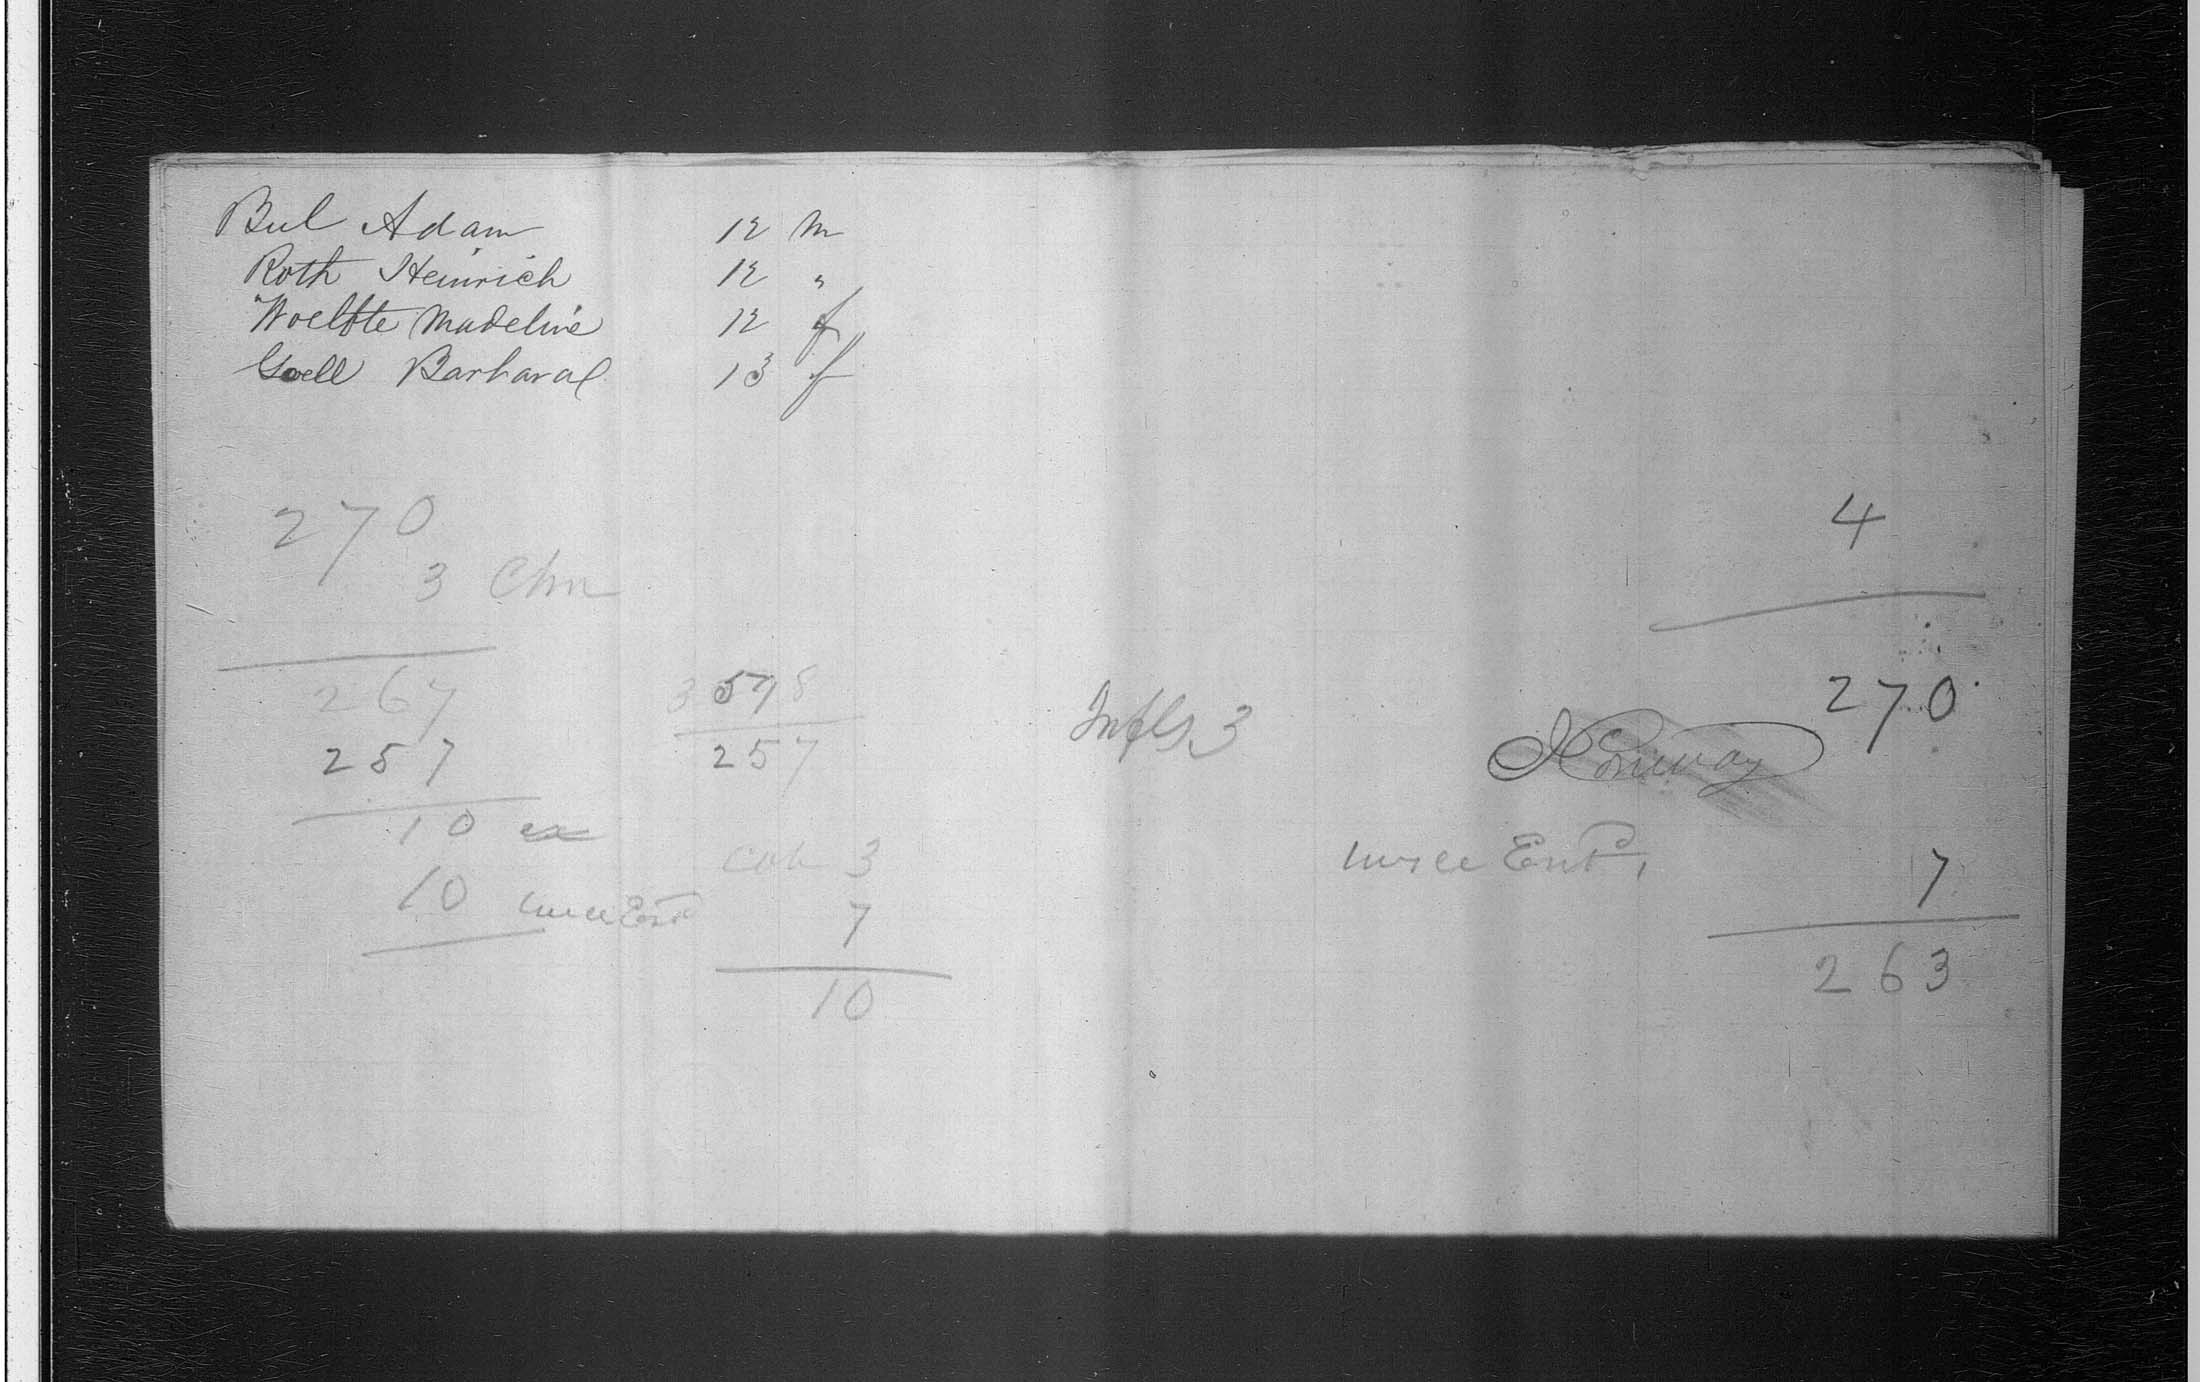 Bul Adam 12 m
Roth Heinrich 12 "
Woelfte Madeline 12 f
Goell Barbara 13 f
4
270
3 Chn
267
257
10 ex
10 twice Entd
257
Infts 3
270
Conway
Cab 3
7
10
twice Entd
7
263